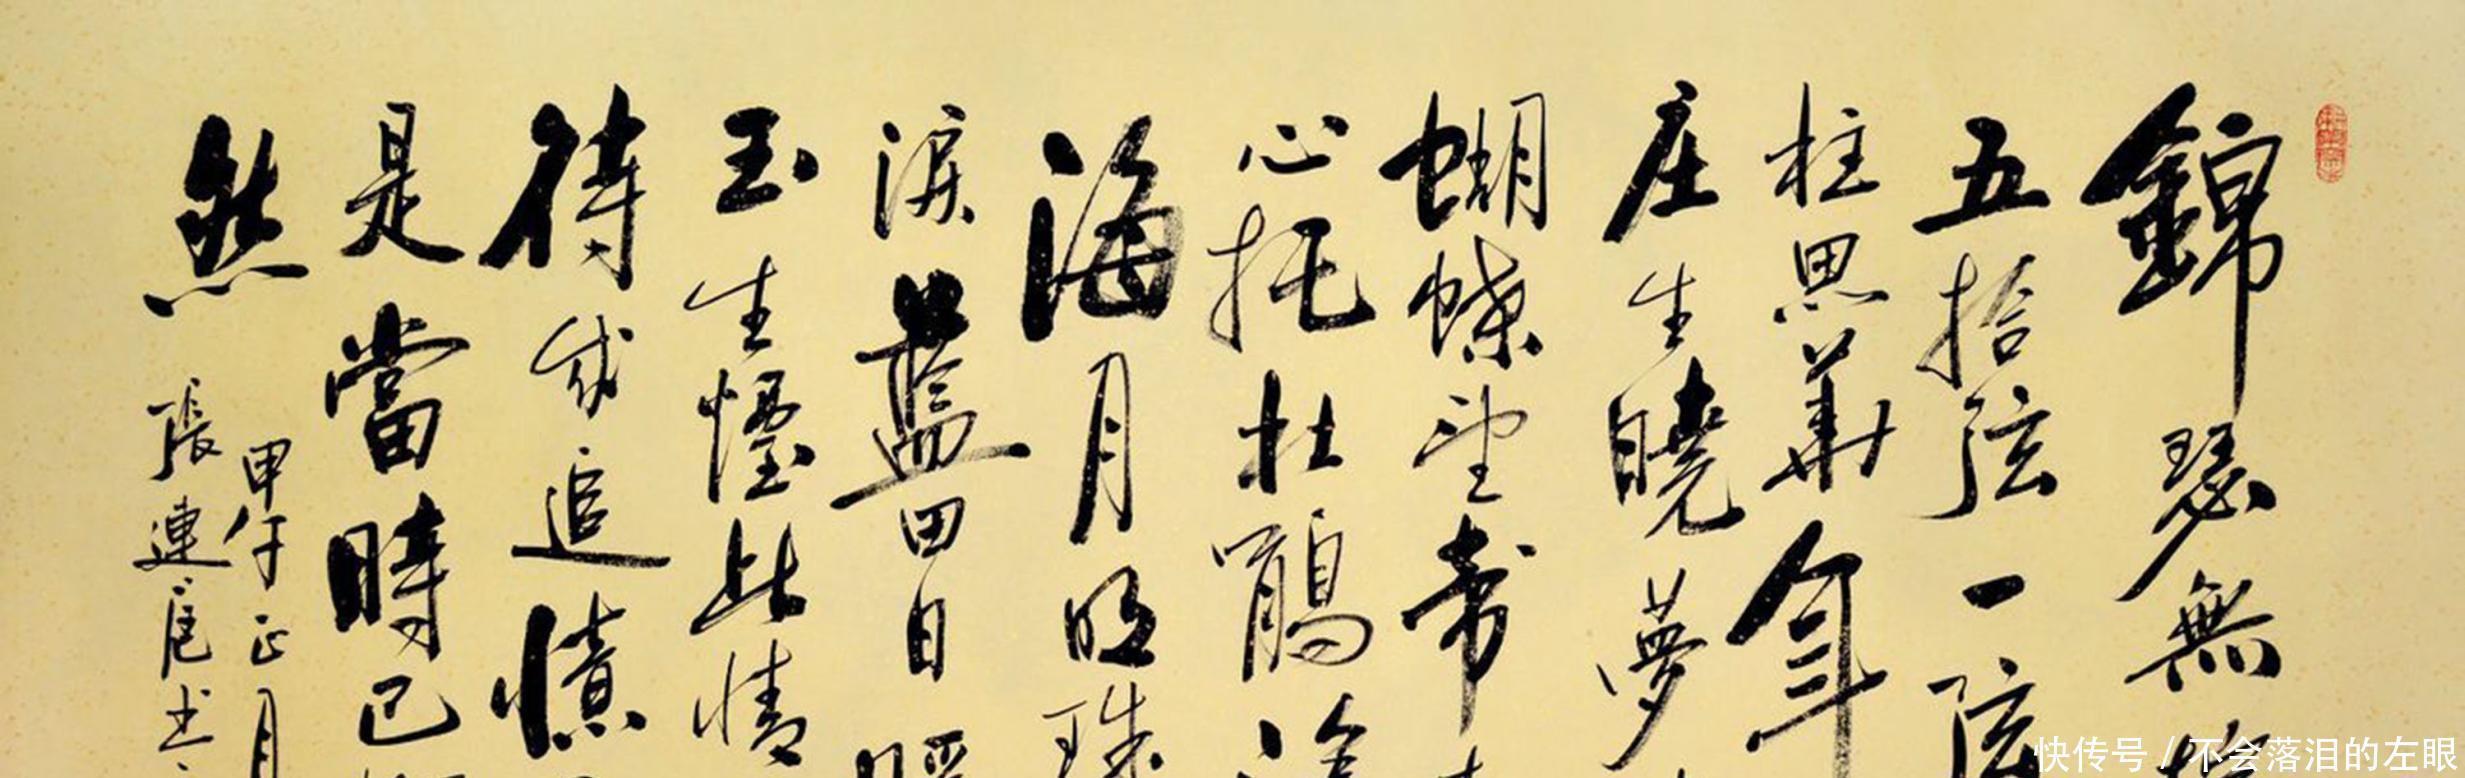 錦瑟無
五拾弦一弦
柱思華年
庄生曉夢
蝴蝶望帝
心托杜鵑滄
海月明珠
淚藍田日暖
玉生煙此情
待成追憶
是當時已
然
甲午正月
張連書
快传号 / 不会落泪的左眼